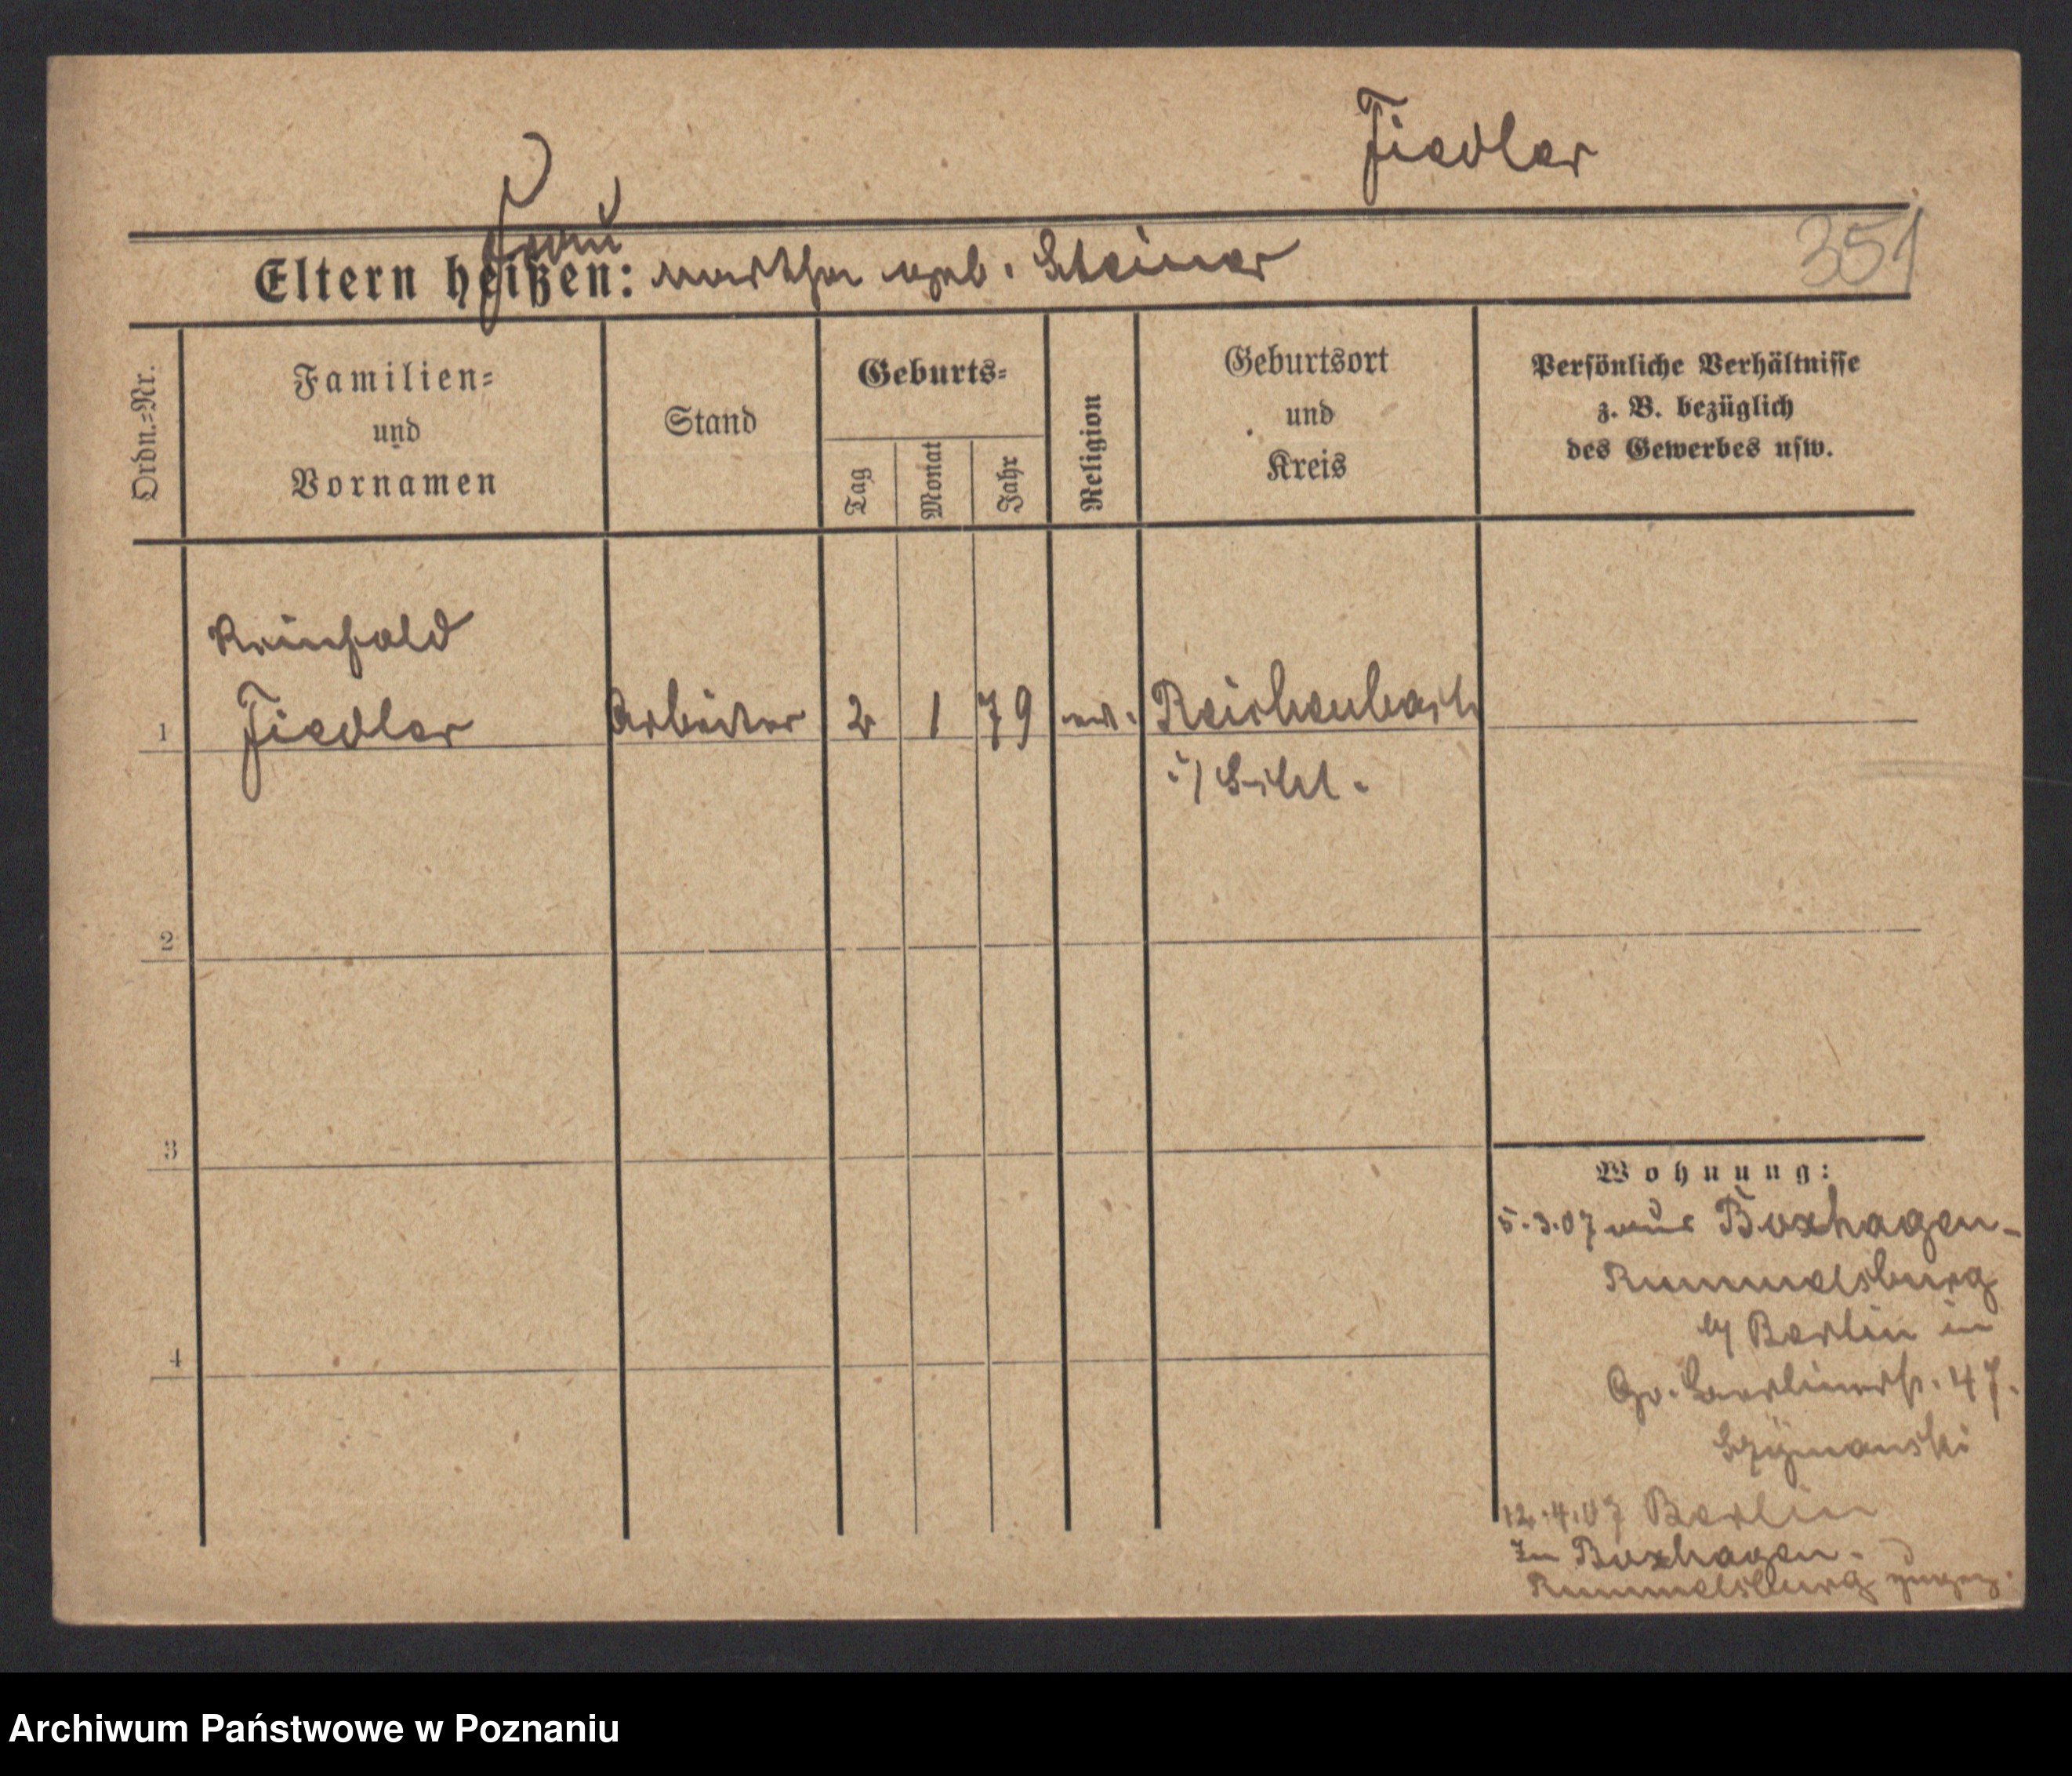 Fiedler
Frau
Eltern heißen: Martha geb. Steiner
351
Ordn.=Nr.
Familien=
und
Vornamen
Stand
Geburts=
Tag
Monat
Jahr
Religion
Geburtsort
und
Kreis
Persönliche Verhältnisse
z. B. bezüglich
des Gewerbes usw.
Reinhold
1 Fiedler Arbeiter 2 1 79 ev. Reichenbach
i/ Schl.
2
3
4
Wohnung:
5.3.07 aus Boxhagen-
Rummelsburg
b/ Berlin in
Gr. Berlinerstr. 47.
Szymanski
12.4.07 Berlin
In Boxhagen-
Rummelsburg
Archiwum Państwowe w Poznaniu